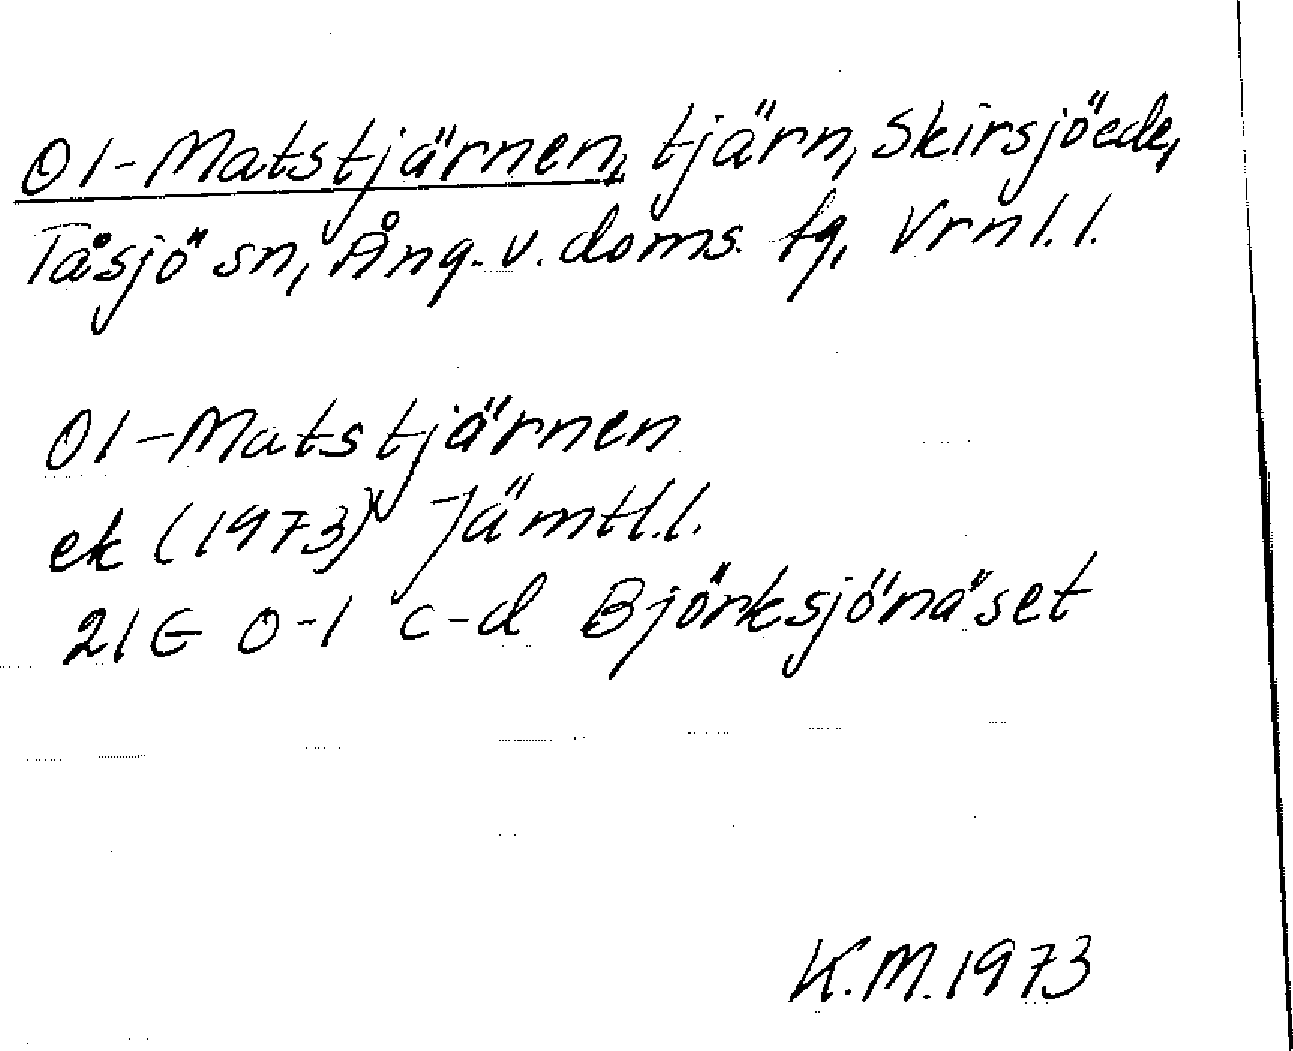 Ol-Matstjärnen, tjärn, Skirsjöede,
Tåsjö sn, Ång. v. doms. fg, Vrnl. l.
Ol-Matstjärnen
ek (1973) Jämtl. l.
21G 0-1 c-d Björksjönäset
K.M. 1973